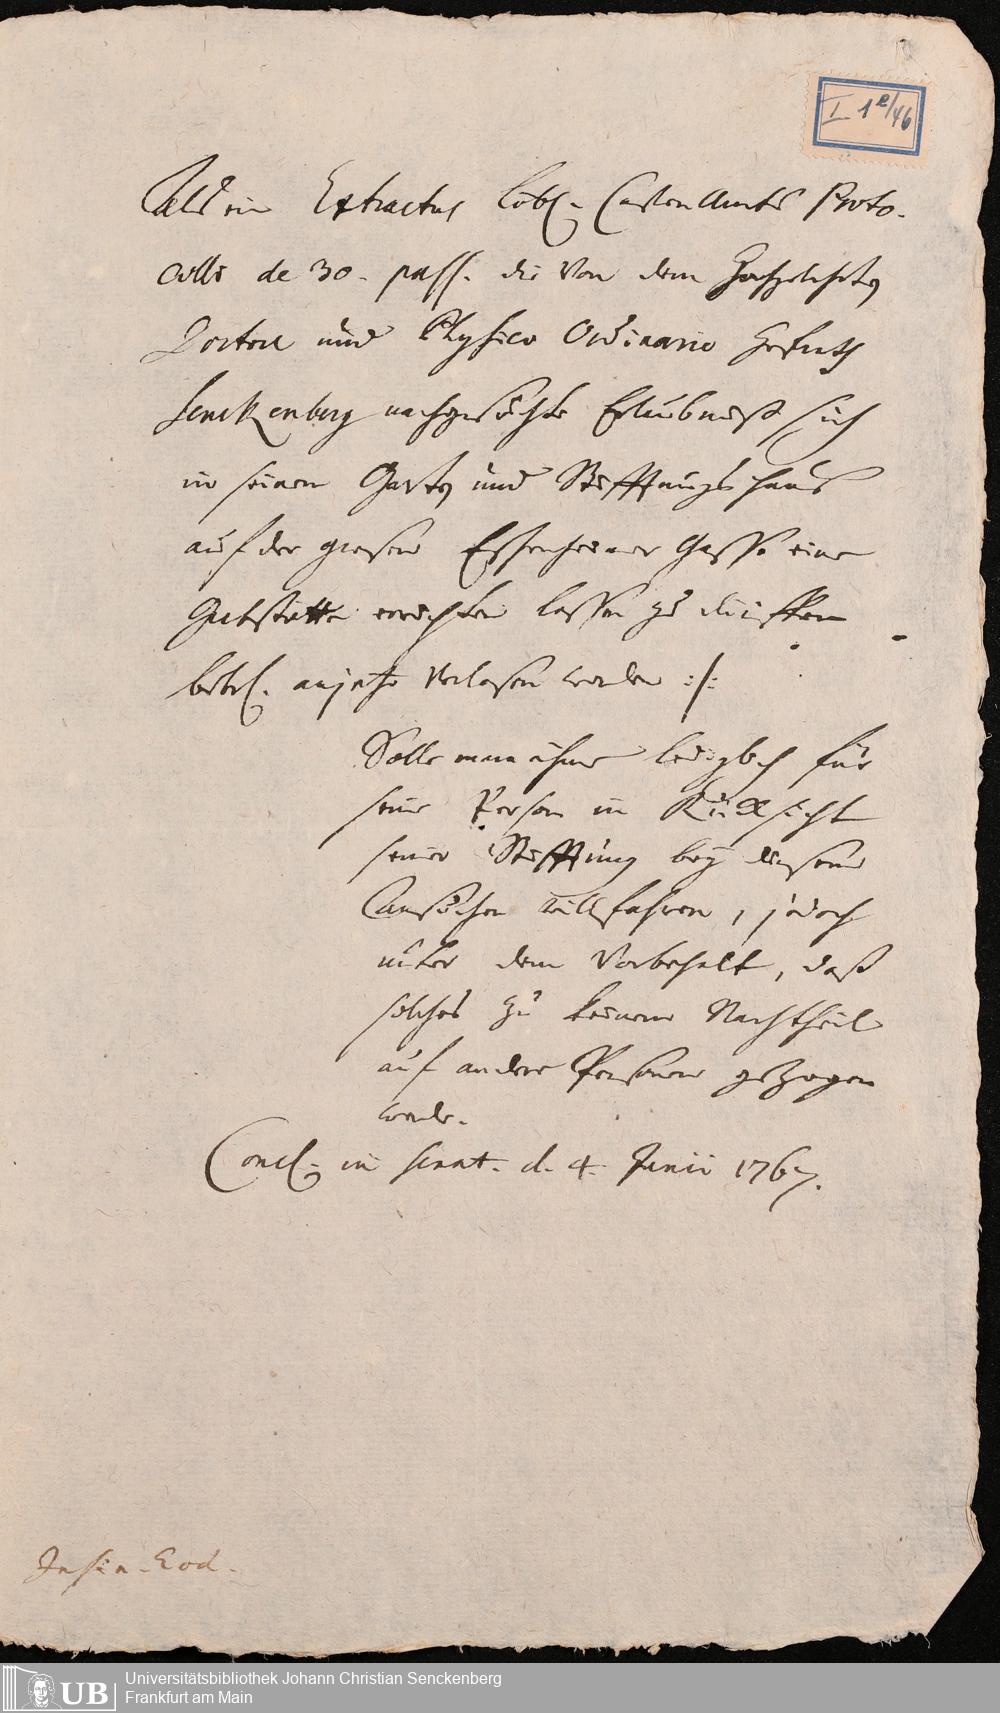 I 1e/46
Als ein Extractus Löbl. Castenamts Proto-
colli de 30. pass. die von dem Hochgelehrten
Doctore und Physico Ordinario Herrn
Senckenberg nachgesuchte Erlaubnuß sich
in seinem Garten und Stifftungs Haus
auf der grosen Eschenheimer Gasse eine
Grabstätte errichten lassen zu dürffen
betrl. anjetzo verlesen worden :/:
Solle man ihme lediglich für
seine Person in Rücksicht
seiner Stifftung bey diesem
Ansuchen willfahren, jedoch
unter dem Vorbehalt, daß
solches zu keinem Nachtheil
auf andere Personen gezogen
werde.
Concl. in Senat. d. 4. Junii 1767.
Insin. Eod.
UB
Universitätsbibliothek Johann Christian Senckenberg
Frankfurt am Main